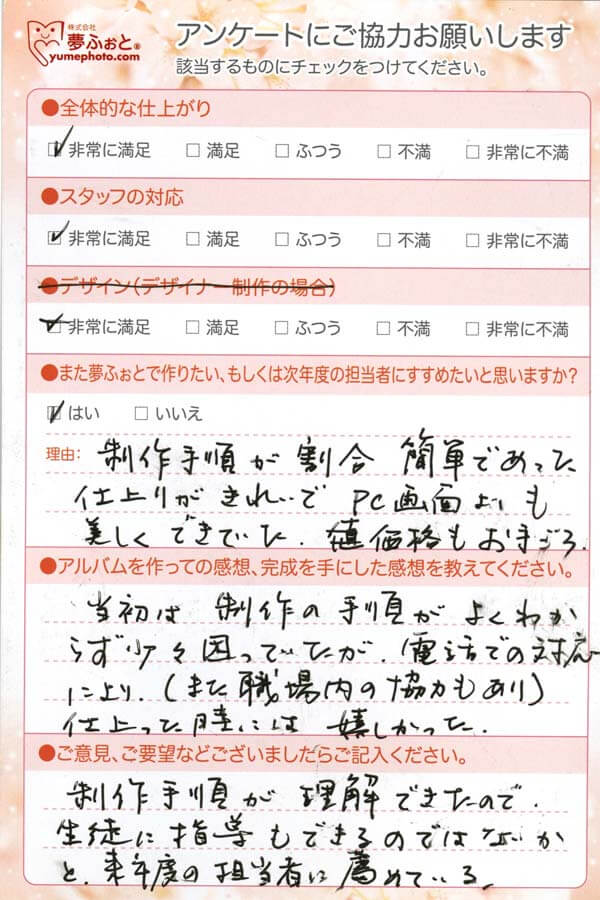 株式会社
夢ふぉと®
yumephoto.com
アンケートにご協力お願いします
該当するものにチェックをつけてください。
●全体的な仕上がり
☑ 非常に満足 □ 満足 □ ふつう □ 不満 □ 非常に不満
●スタッフの対応
☑ 非常に満足 □ 満足 □ ふつう □ 不満 □ 非常に不満
●デザイン(デザイナー制作の場合)
☑ 非常に満足 □ 満足 □ ふつう □ 不満 □ 非常に不満
●また夢ふぉとで作りたい、もしくは次年度の担当者にすすめたいと思いますか?
☑ はい □ いいえ
理由: 制作手順が割合簡単であった
仕上りがきれいで PC画面よりも
美しくできていた。価格もお手ごろ。
●アルバムを作っての感想、完成を手にした感想を教えてください。
当初は制作の手順がよくわか
らず少々困っていたが、電話での対応
により、(また職場内の協力もあり)
仕上った時には嬉しかった。
●ご意見、ご要望などございましたらご記入ください。
制作手順が理解できたので、
生徒に指導もできるのではないか
と、来年度の担当者に薦めている。